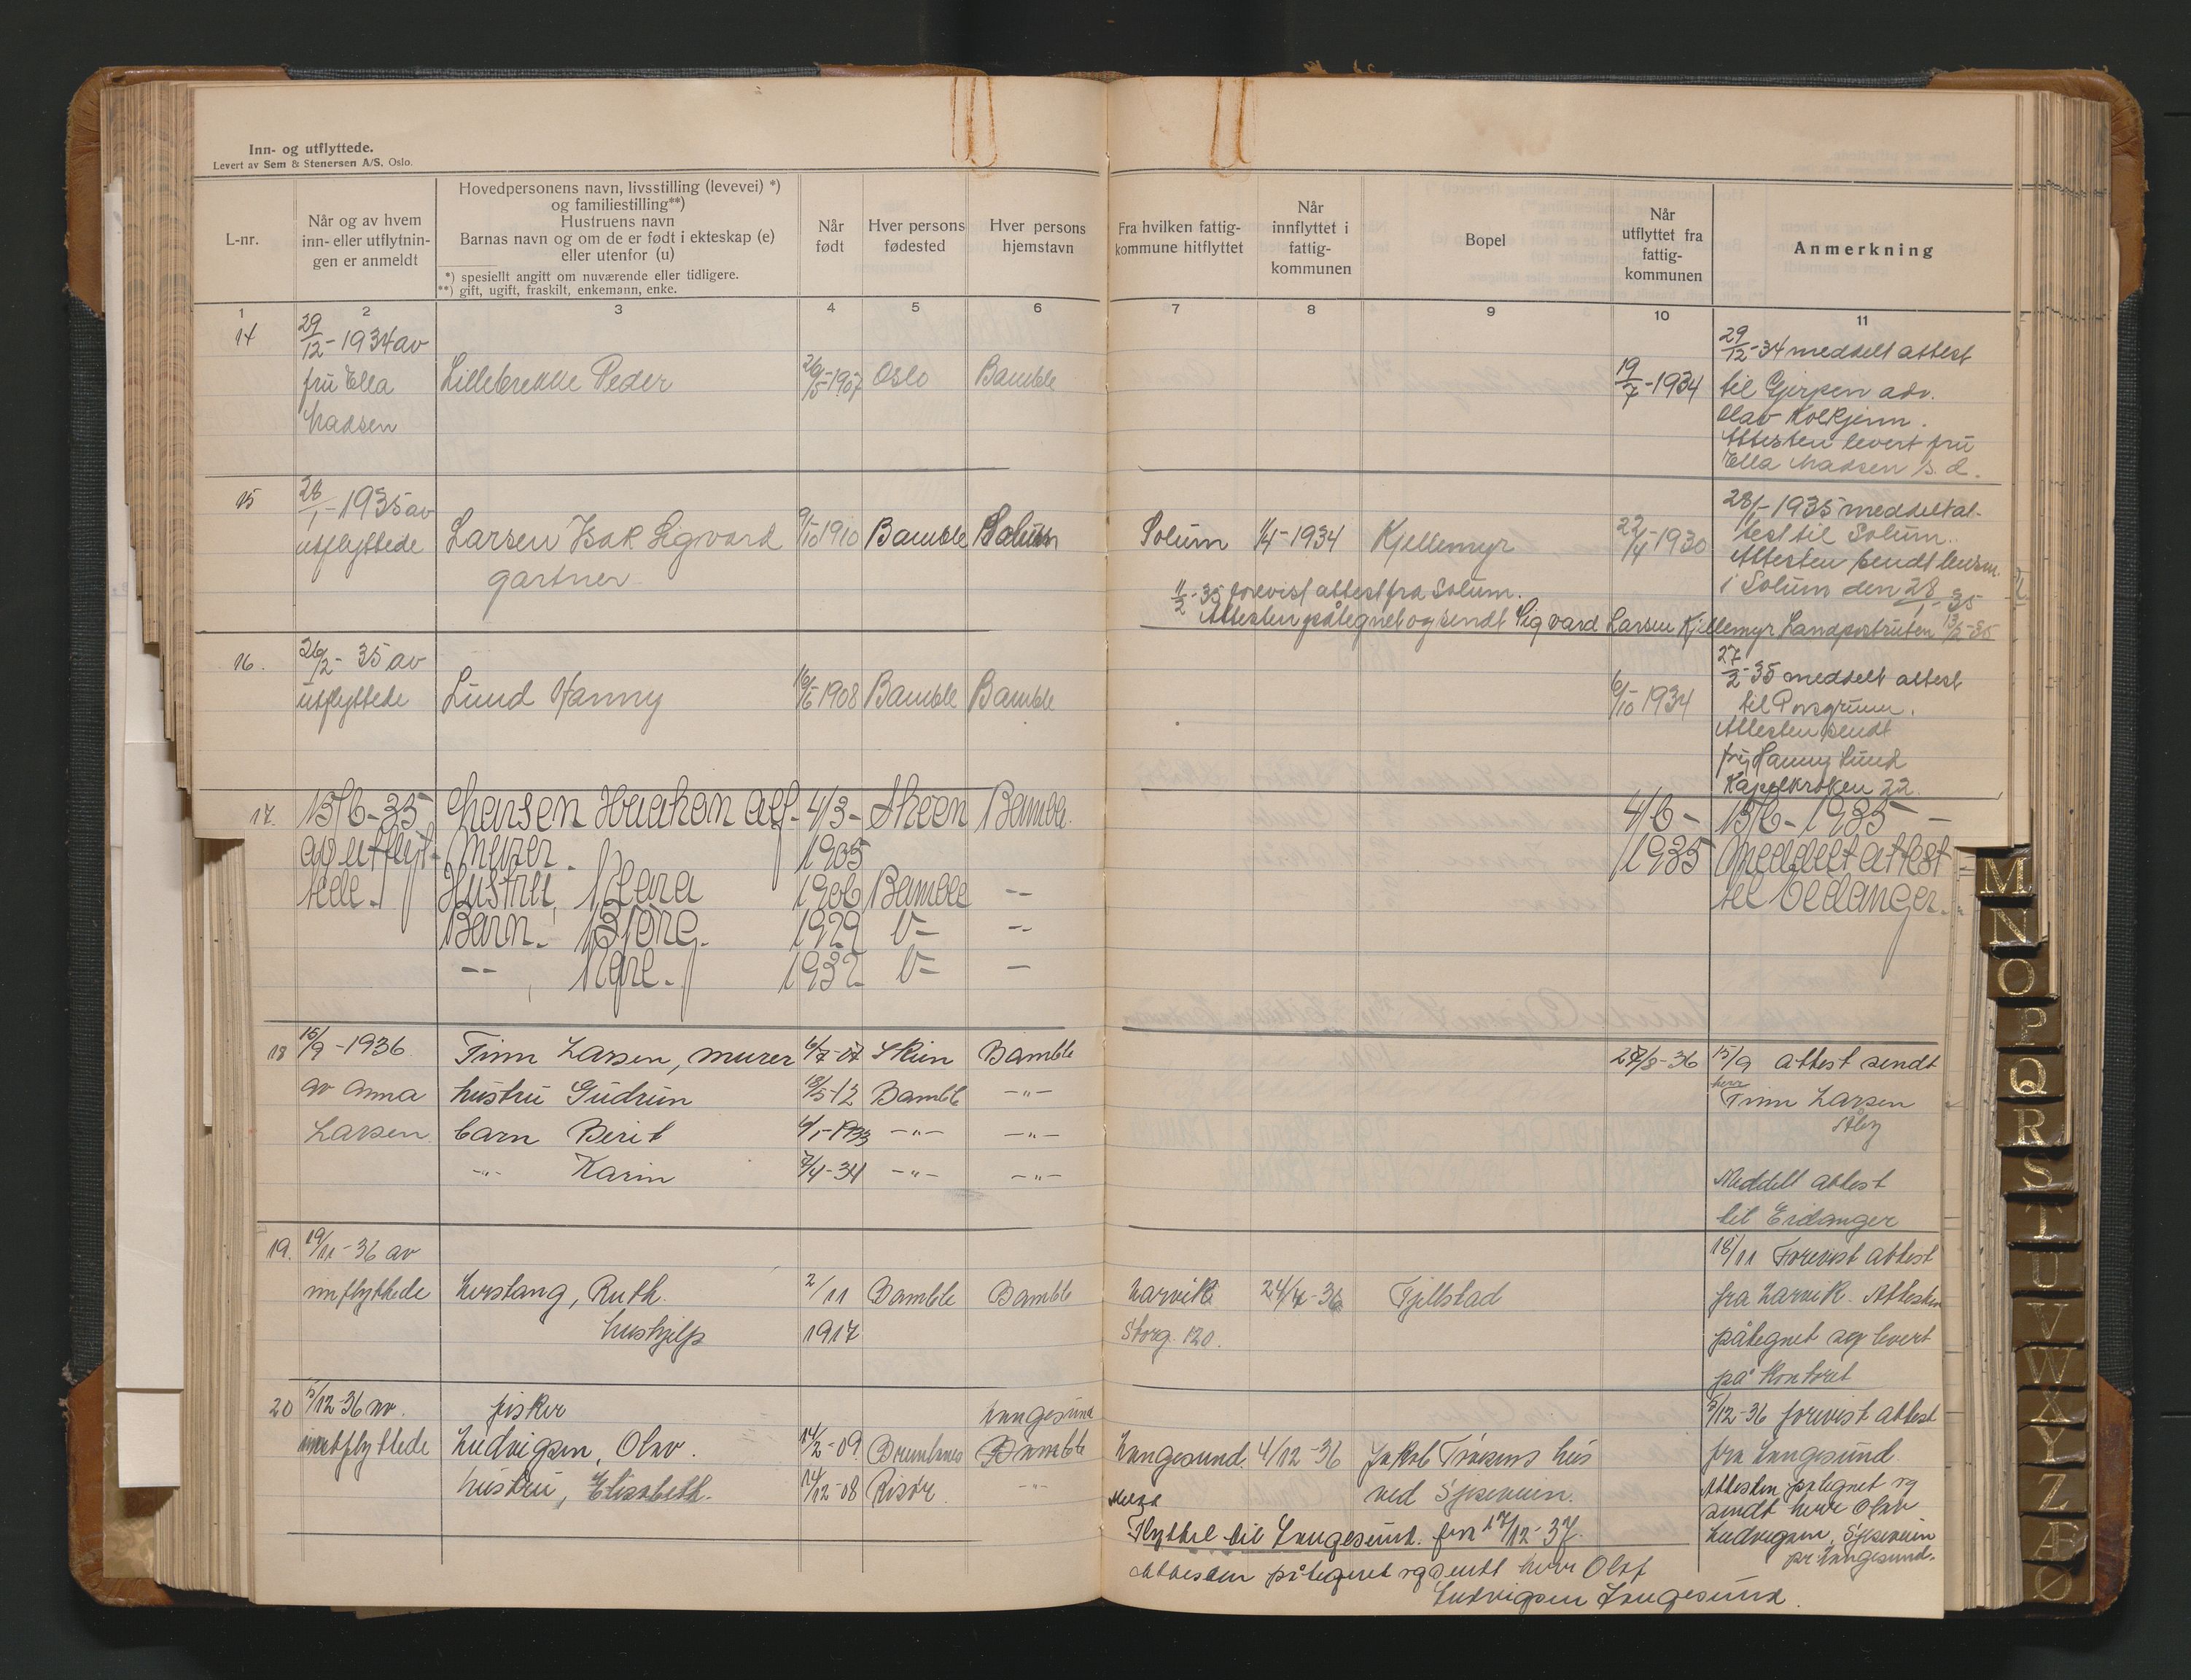 Inn- og utflyttede.
Levert av Sem & Stenersen A/S, Oslo.
L-nr.
Når og av hvem
inn- eller utflytnin-
gen er anmeldt
Hovedpersonens navn, livsstilling (levevei) *)
og familiestilling**)
Hustruens navn
Barnas navn og om de er født i ekteskap (e)
eller utenfor (u)
*) spesiellt angitt om nuværende eller tidligere.
**) gift, ugift, fraskilt, enkemann, enke.
Når
født
Hver persons
fødested
Hver persons
hjemstavn
Fra hvilken fattig-
kommune hitflyttet
Når
innflyttet i
fattig-
kommunen
Bopel
Når
utflyttet fra
fattig-
kommunen
Anmerkning
1 2 3 4 5 6 7 8 9 10 11
14 29/12 - 1934 av 29/12 - 34 meddelt attest
fru Ella Lillebrekke Peder 26/5-1907 Oslo Bamble 19/7 - 1934 til Gjerpen adv.
Madsen Olav Kolkjenn.
Attesten levert fru
Ella Madsen s. d.
15 28/1 - 1935 av 28/1 - 1935 meddelt at-
utflyttede Larsen Isak Sigvard 9/10 1910 Bamble Solum Solum 1/4 - 1934 Kjellemyr 22/4 - 1930 test til Solum.
gartner Attesten sendt lensm.
i Solum den 28/1 - 35
11/2 - 35 forevist attest fra Solum.
Attesten påtegnet og sendt Sigvard Larsen Kjellemyr Landpostruten 13/2 - 35
16. 26/2 - 35 av 27/2 - 35 meddelt attest
utflyttede Lund Hanny 16/6 1908 Bamble Bamble 6/10 1934 til Porsgrunn.
Attesten sendt
frk Hanny Lund
Kapelkroken 22.
17. 15/6-35 Larsen Haakon Alf- 4/3- Skeen Bamble. 4/6- 15/6-1935 -
av utflyt- murer. 1905 1935 Meddelt attest
tede. Hustru, Klara 1906 Bamble -- til Eidanger.
Barn. Björg. 1929 V= --
-- , Kåre. 1932 V= --
18 15/9 - 1936 Finn Larsen, murer 6/7-07 Skien Bamble 28/8-36 15/9 Attest sendt
av Anna hustru Gudrun 18/5-12 Bamble -"- herr Finn Larsen
Larsen. barn Berit 6/1-1933 -"- -"-
-"- Karin 7/4-34 -"- -"- Meddelt attest
til Eidanger
19. 19/11-36 av 18/11 Forevist attest
innflyttede Herstang, Ruth. 2/11 Bamble Bamble Larvik 24/4-36 Fjellstad fra Larvik. Attesten
hushjelp 1917 Storg. 120. påtegnet og levert
på kontoret
20 5/12-36 av. fisker Langesund 5/12-36 forevist attest
innflyttede Ludvigsen, Olav. 14/2-09 Brunlanes Bamble Langesund. 4/12-36 Jakob Tråsens hus fra Langesund.
hustru, Elisabeth. 14/12-08 Risør. -"- ved Sjøveien. Attesten påtegnet og
sendt herr Olav
Ludvigsen, Sjøveien
pr. Langesund.
Flyttet til Langesund. fra 17/12-37.
Attesten påtegnet og sendt herr Olaf
Ludvigsen Langesund.
M
N
O
P
Q
R
S
T
U
V
W
X
Y
Z
Æ
Ø